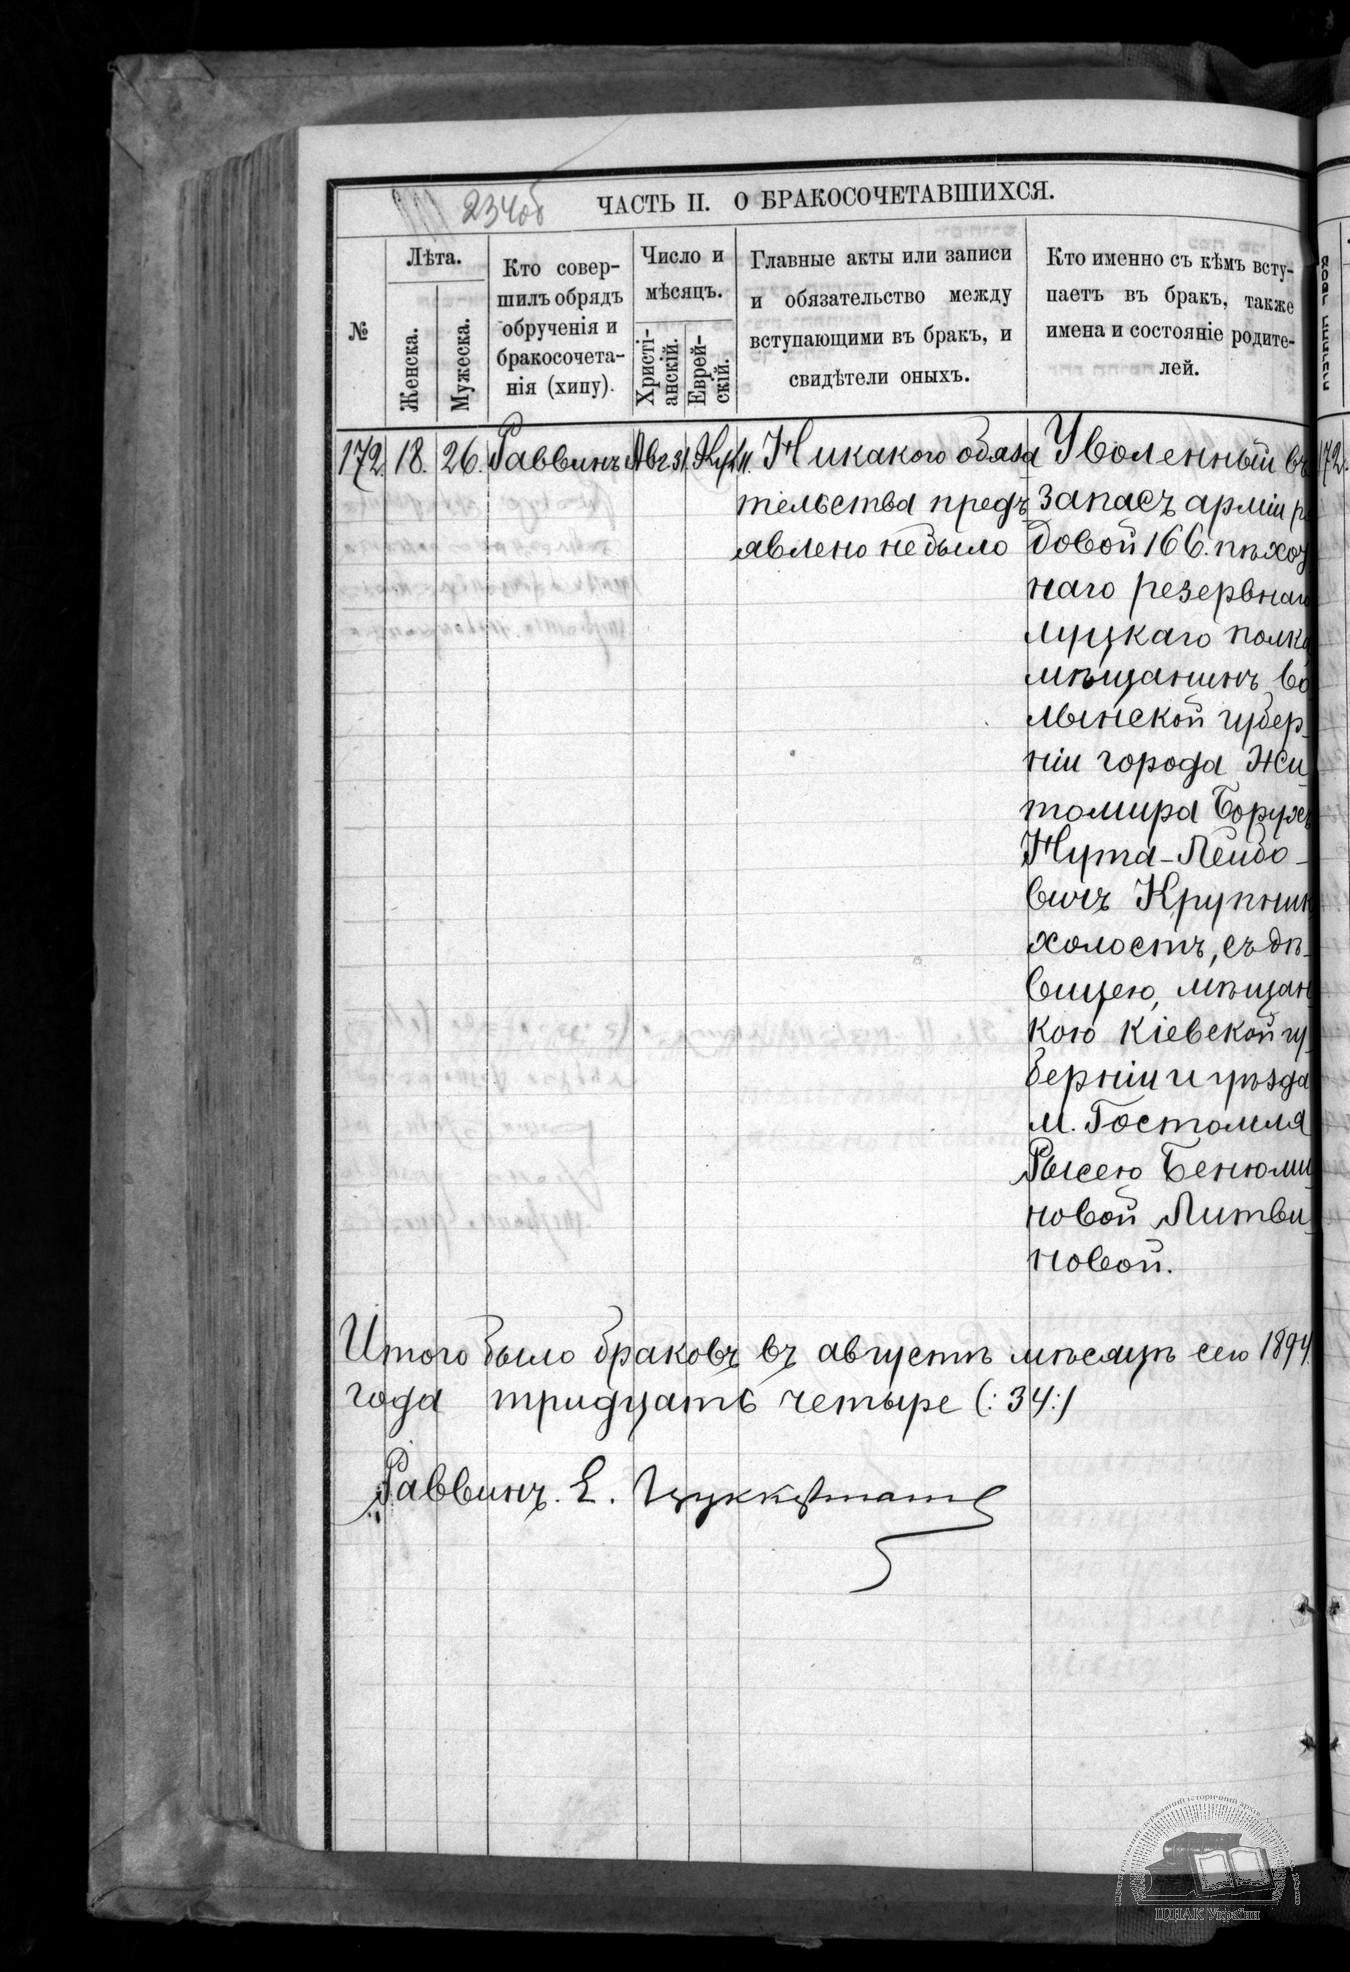 234об
ЧАСТЬ II. О БРАКОСОЧЕТАВШИХСЯ.
№
Лѣта.
Женска.
Мужеска.
Кто совер-
шилъ обрядъ
обрученія и
бракосочета-
нія (хипу).
Число и
мѣсяцъ.
Христі-
анскій.
Еврей-
скій.
Главные акты или записи
и обязательство между
вступающими въ бракъ, и
свидѣтели оныхъ.
Кто именно съ кѣмъ всту-
паетъ въ бракъ, также
имена и состояніе родите-
лей.
172. 18. 26. Раввинъ Авг. 31. 11.
Никакого обяза
тельства предъ
явлено небыло
Уволенный въ
запасъ арміи ря
довой 166. пѣхот
наго резервнаго
луцкаго полка
мѣщанинъ Во
лынской губер-
ніи города Жи
томира Борухъ
Нута-Лейбо-
вичъ Крупник
холостъ, съ дѣ-
вицею, мѣщан
кою Кіевской гу-
берніи и уѣзда
м. Гостомля
Рысею Бенюми
новой Литви
новой.
172.
Итого было браковъ въ августѣ мѣсяцѣ сего 1894
года тридцать четыре (: 34:)
Раввинъ. Е. Цуккерманъ
ЦДІАК України